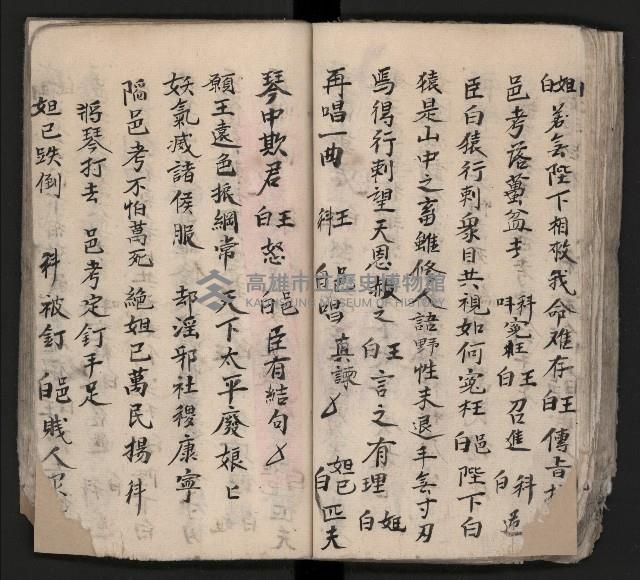 妲白若無陛下相救我命难存王白傳旨
邑考落蠆盆去 科叫寃枉 王白召進 科白
臣白猿行刺衆目共視如何寃枉邑白陛下白
猿是山中之畜雖修人語野性未退手無寸刃
焉得行刺望天恩 之王白言之有理妲白
再唱一曲 王科 邑白唱真諫 妲己白匹夫
琴中欺君王白怒邑白臣有結句
願王遠色振綱常 天下太平廢娘匕
妖氣滅諸侯服 却淫邪社稷康寧
陷邑考不怕萬死 絕妲己萬民揚 科
將琴打去 邑考定釘手足
妲己跌倒 科被釘 邑白賤人
高雄市立歷史博物館
KAOHSIUNG MUSEUM OF HISTORY